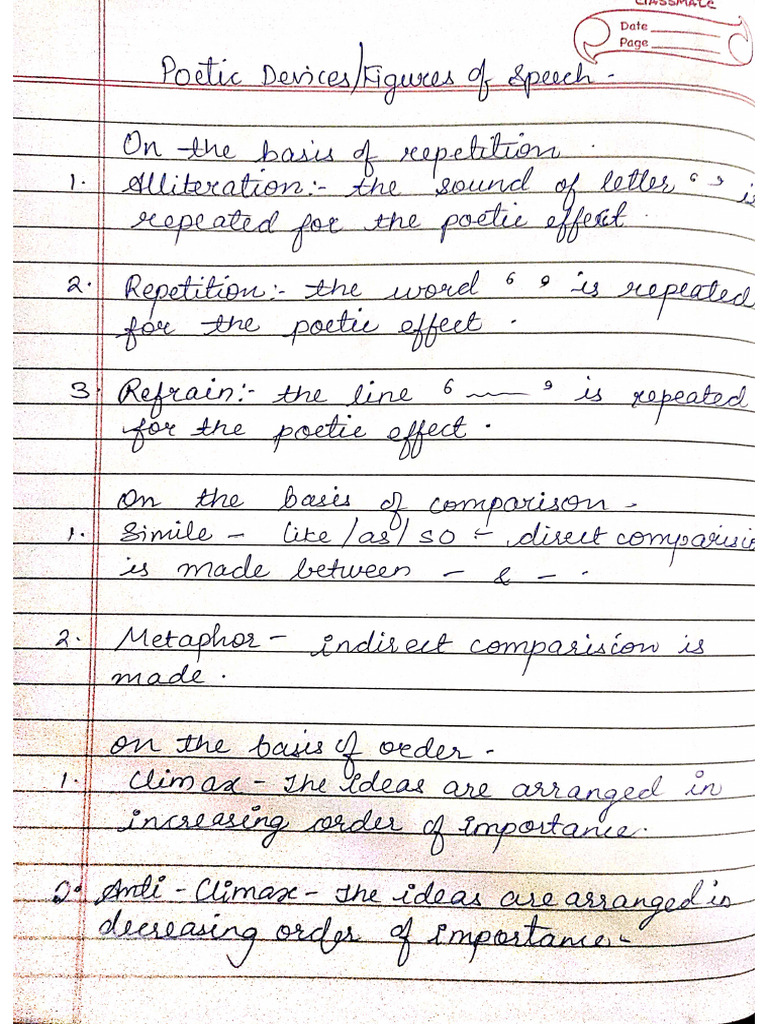 CLASSMATE
Date
Page
Poetic Devices/Figures of Speech -
On the basis of repetition.
1. Alliteration:- the sound of letter ‘ ’ is
repeated for the poetic effect.
2. Repetition:- the word ‘ ’ is repeated
for the poetic effect.
3. Refrain:- the line ‘ ___ ’ is repeated
for the poetic effect.
On the basis of comparison -
1. Simile - like /as/ so :- direct comparisio
is made between - & - .
2. Metaphor - indirect comparision is
made.
on the basis of order -
1. Climax - The ideas are arranged in
increasing order of importance.
2. Anti - Climax - The ideas are arranged in
decreasing order of importance -